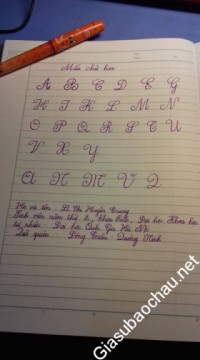 Mẫu chữ hoa
A B C D E G
H I K L M N
O P Q R S T U
V X Y
A N M V Q
Họ và tên: Lê Thị Huyền Trang
Sinh viên năm thứ, khoa, Đại học Khoa học
tự nhiên - Đại học Quốc Gia Hà Nội
Quê quán: Đông Triều - Quảng Ninh
Giasubaochau.net